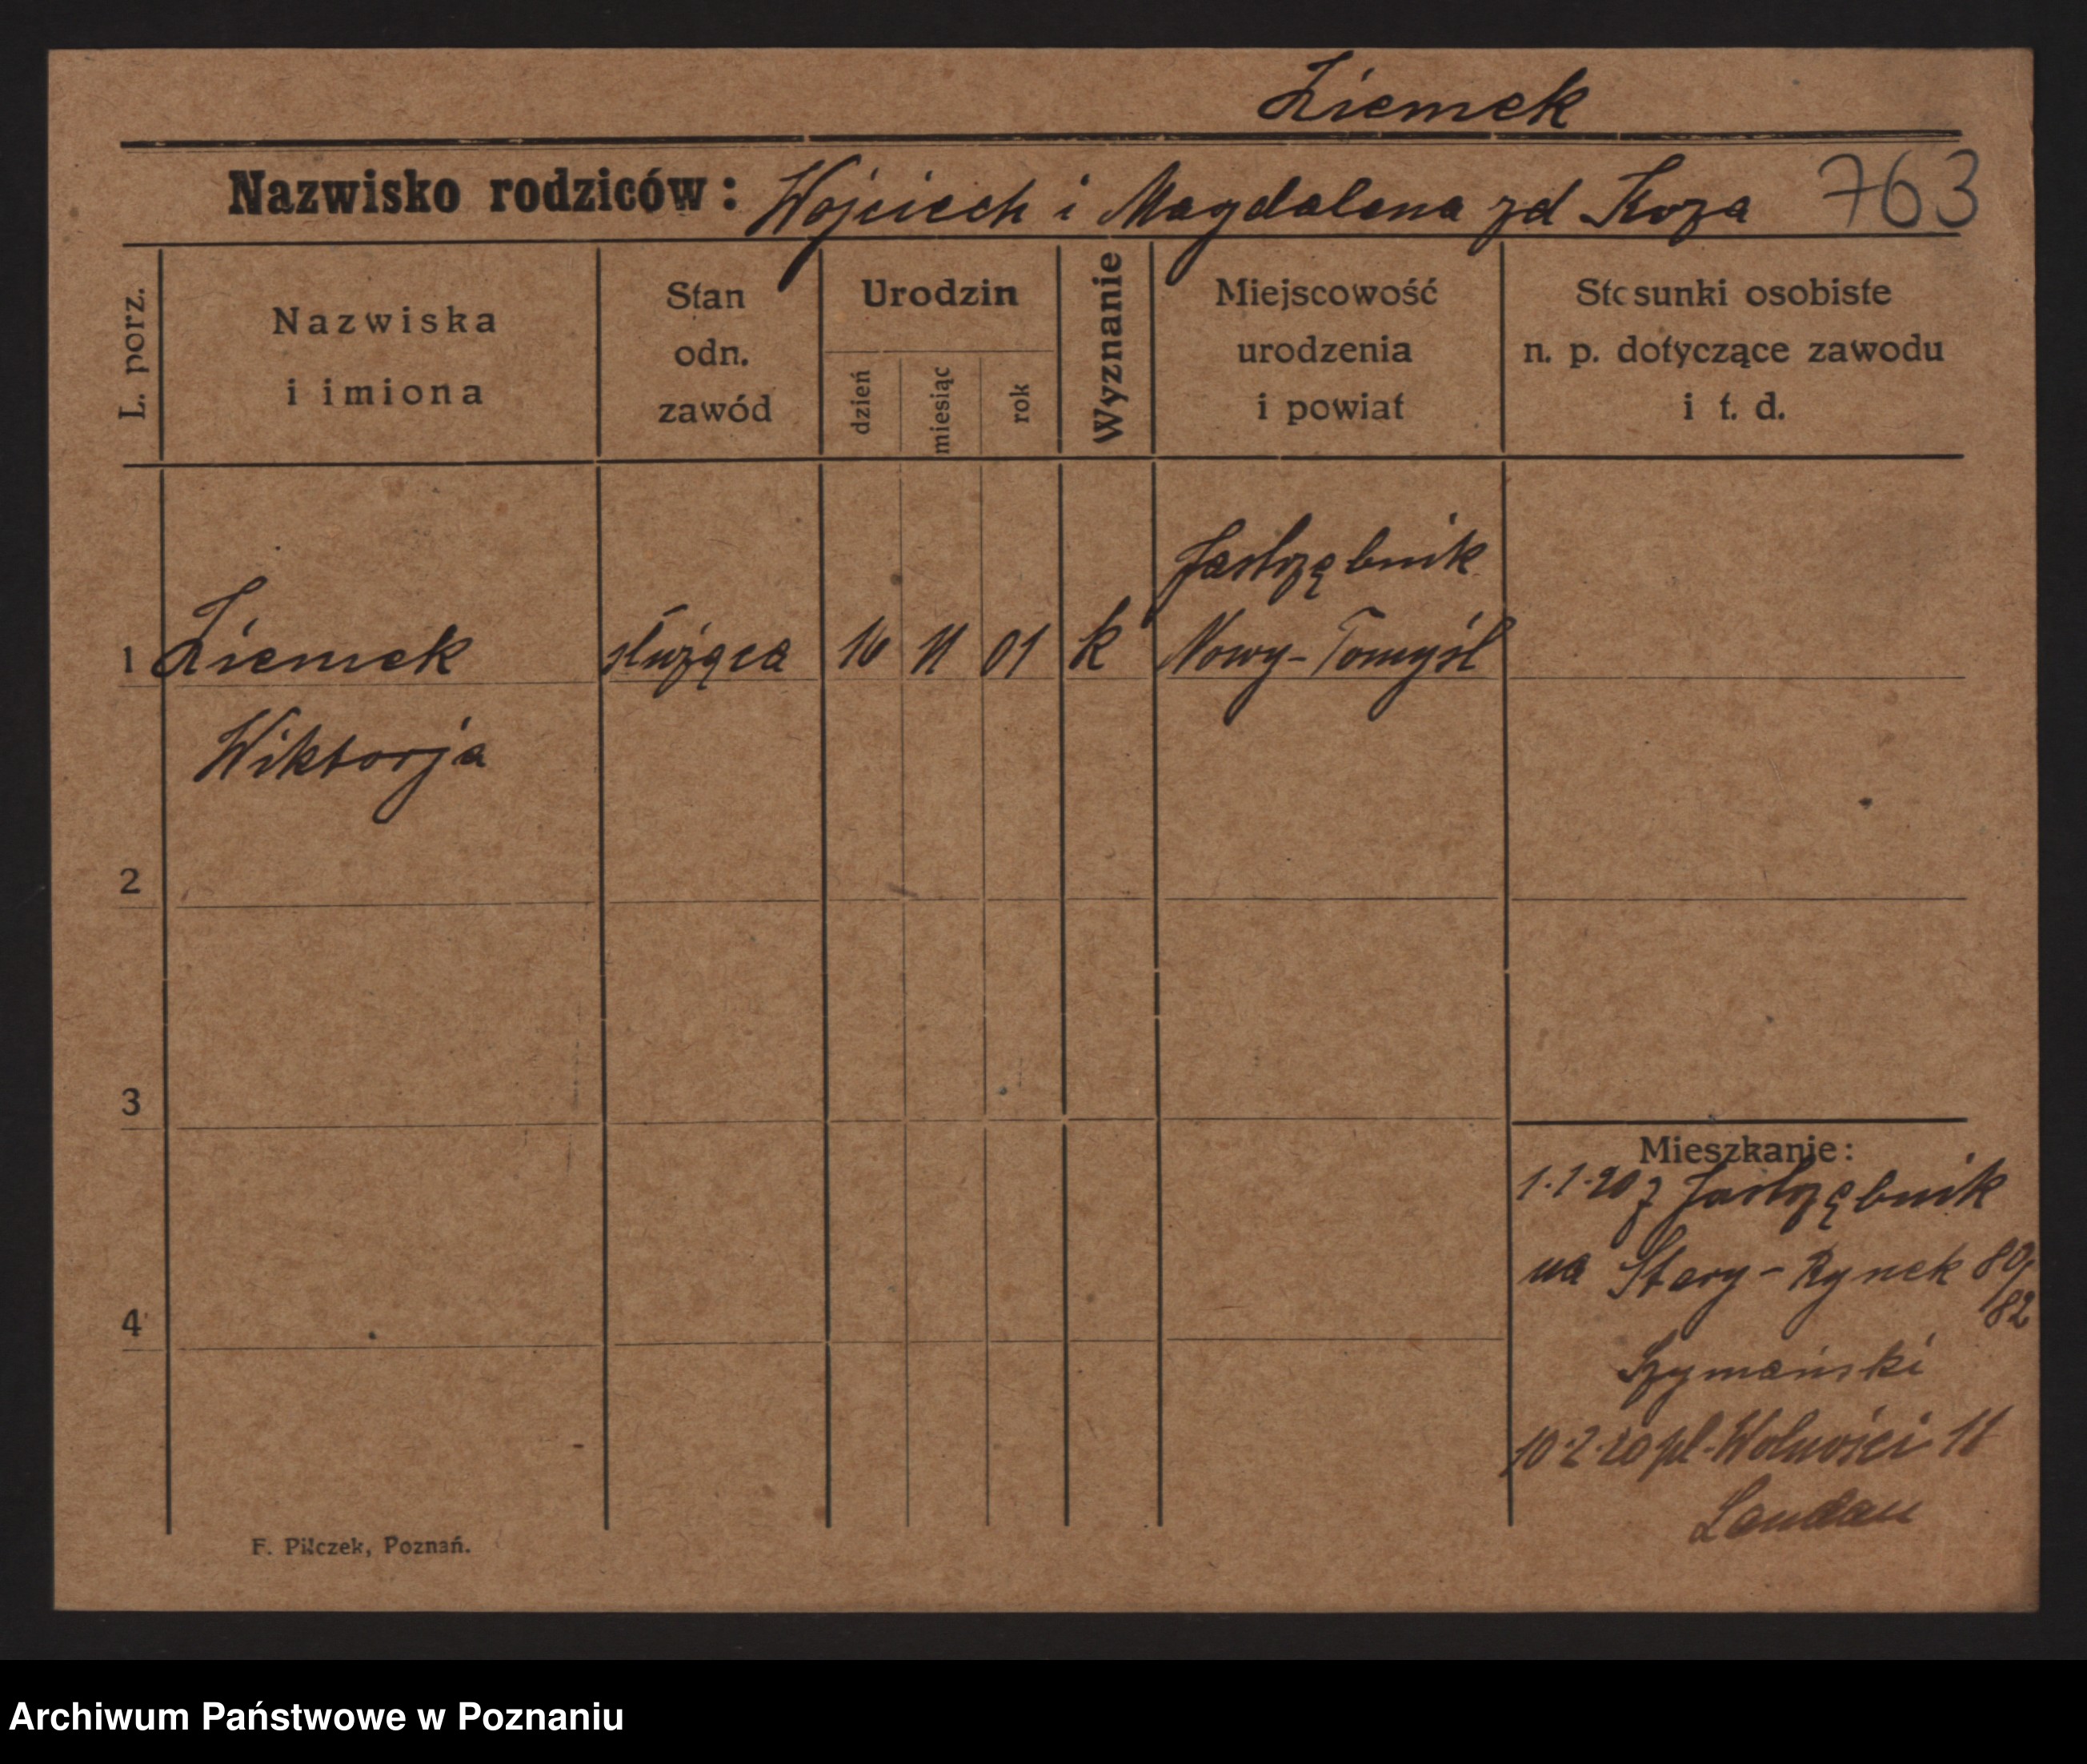 Ziemek
Nazwisko rodziców: Wojciech i Magdalena zd Koza 763
L. porz.
Nazwiska
i imiona
Stan
odn.
zawód
Urodzin
dzień
miesiąc
rok
Wyznanie
Miejscowość
urodzenia
i powiat
Stosunki osobiste
n. p. dotyczące zawodu
i t. d.
Jastrzębnik
1 Ziemek służąca 16 11 01 k Nowy-Tomyśl
Wiktorja
2
3
Mieszkanie:
1.1.20 z Jastrzębnik
na Stary-Rynek 80/
82
4
Szymański
10.2.20 pl. Wolności 11
Landau
F. Pilczek, Poznań.
Archiwum Państwowe w Poznaniu